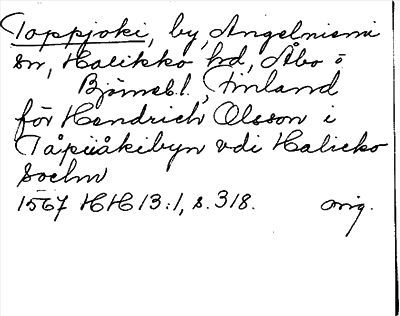 Toppjoki, by, Angelniemi
sn, Halikko hd, Åbo o
Björneb. l., Finland
för Hendrich Olsson i
Tåpiiåkibyn vdi Halicko
Sochn
1567 HH 13:1, s. 318. orig.